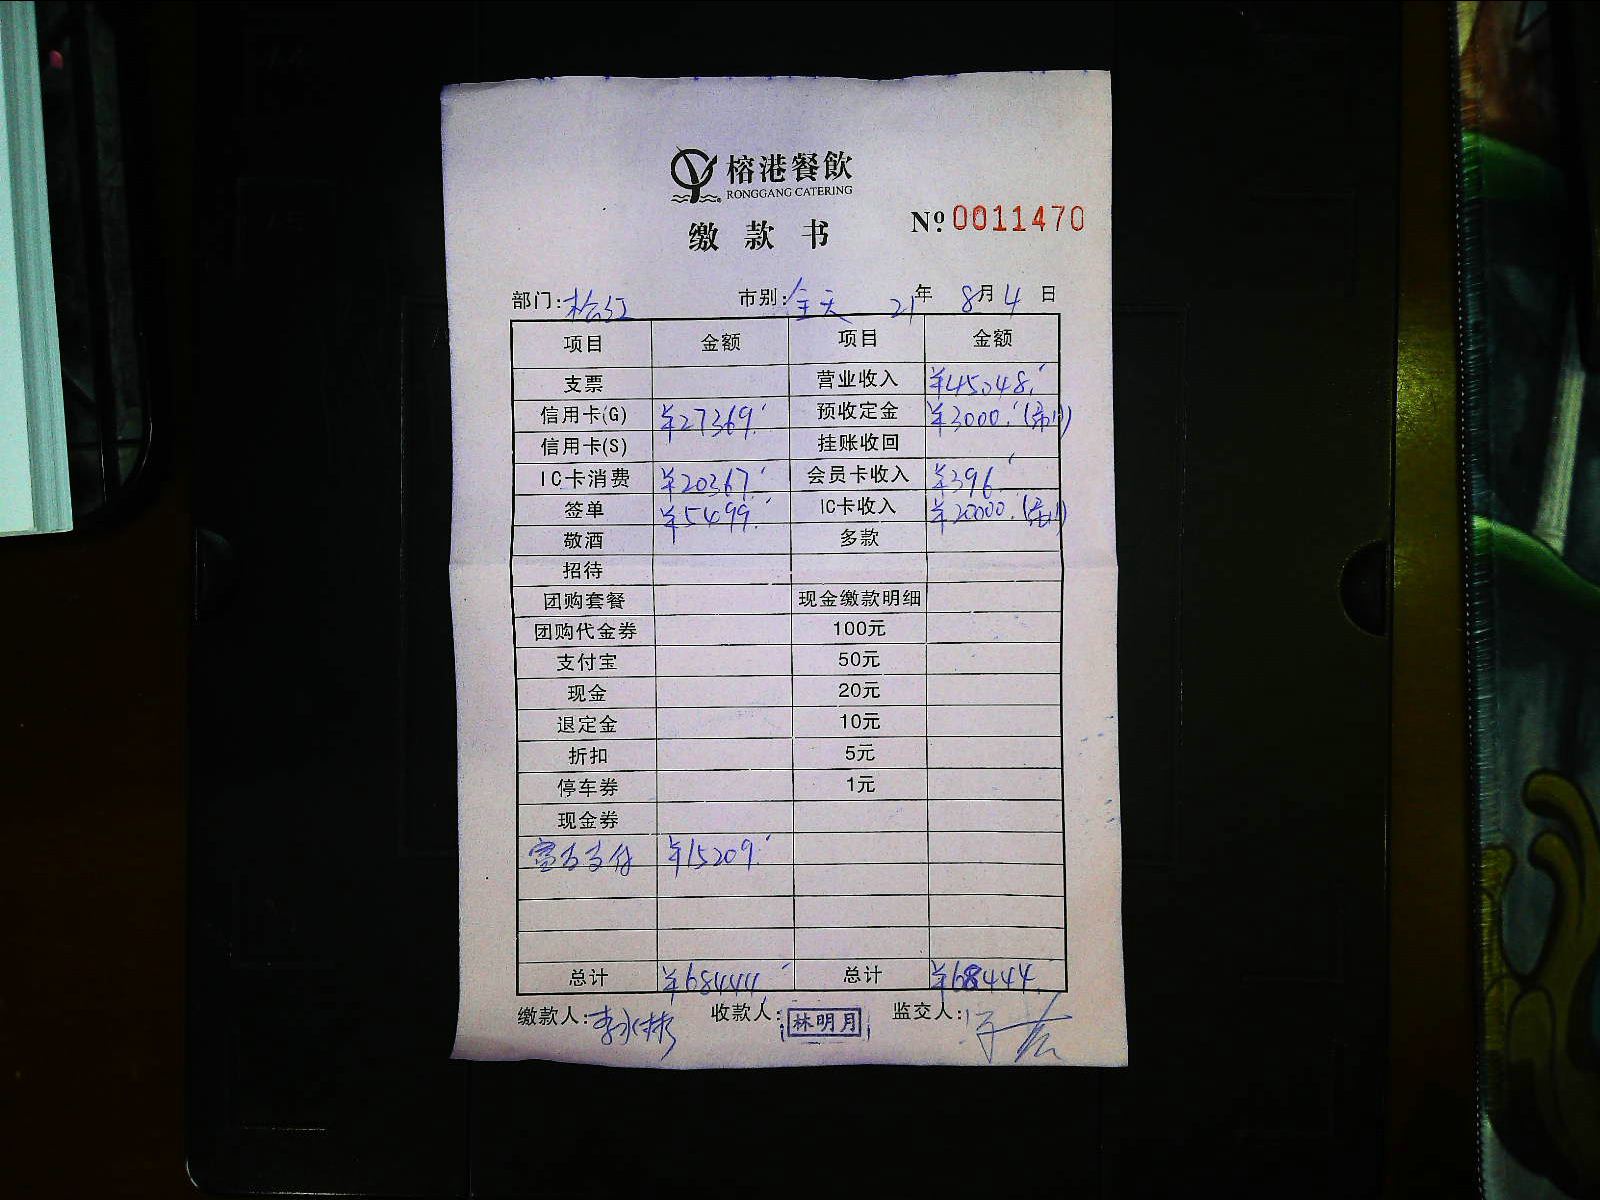 榕港餐飲
RONGGANG CATERING
缴款书 № 0011470
部门:松江 市别:全天 21年 8月 4日
项目 金额 项目 金额
支票 营业收入 ¥45048.-
信用卡(G) ¥27369.- 预收定金 ¥3000.-
信用卡(S) 挂账收回
IC卡消费 ¥20367.- 会员卡收入 ¥396.-
签单 ¥5499.- IC卡收入 ¥20000.
敬酒 多款
招待
团购套餐 现金缴款明细
团购代金券 100元
支付宝 50元
现金 20元
退定金 10元
折扣 5元
停车券 1元
现金券
富友支付 ¥15209.-
总计 ¥68444.- 总计 ¥68444.-
缴款人: 收款人:林明月 监交人: